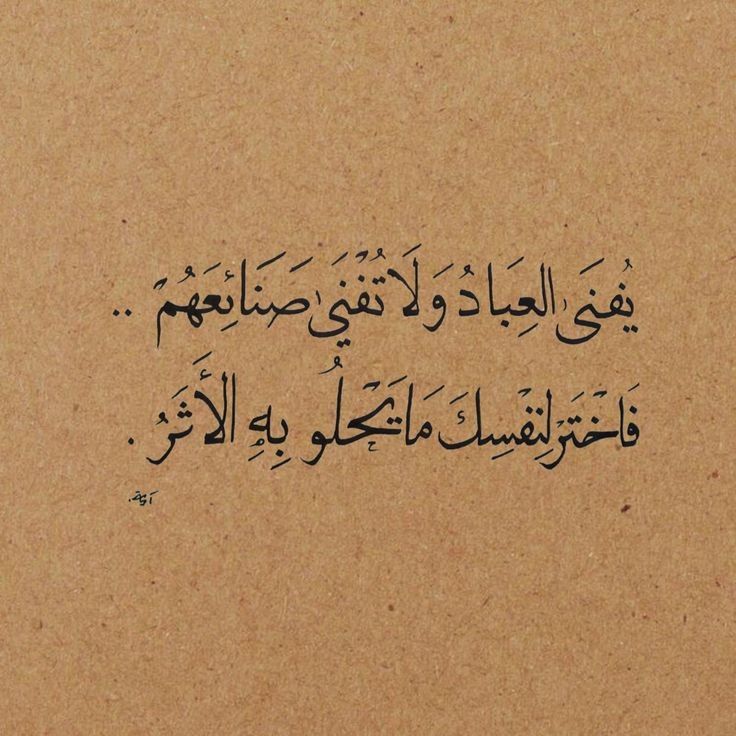 يُفنَىٰ العِبَادُ وَلَا تُفْنَىٰ صَنَائِعَهُمْ ..
فَاخْتَرْ لِنَفْسِكَ مَا يَحْلُو بِهِ الأَثَرُ .